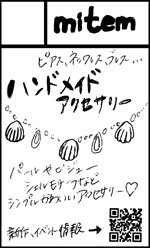 mitem
ピアス、ネックレス、ブレス…
ハンドメイド
アクセサリー
パールやビジュー
シェルモチーフなど
シンプルかわいいアクセサリー♡
新作、イベント情報→